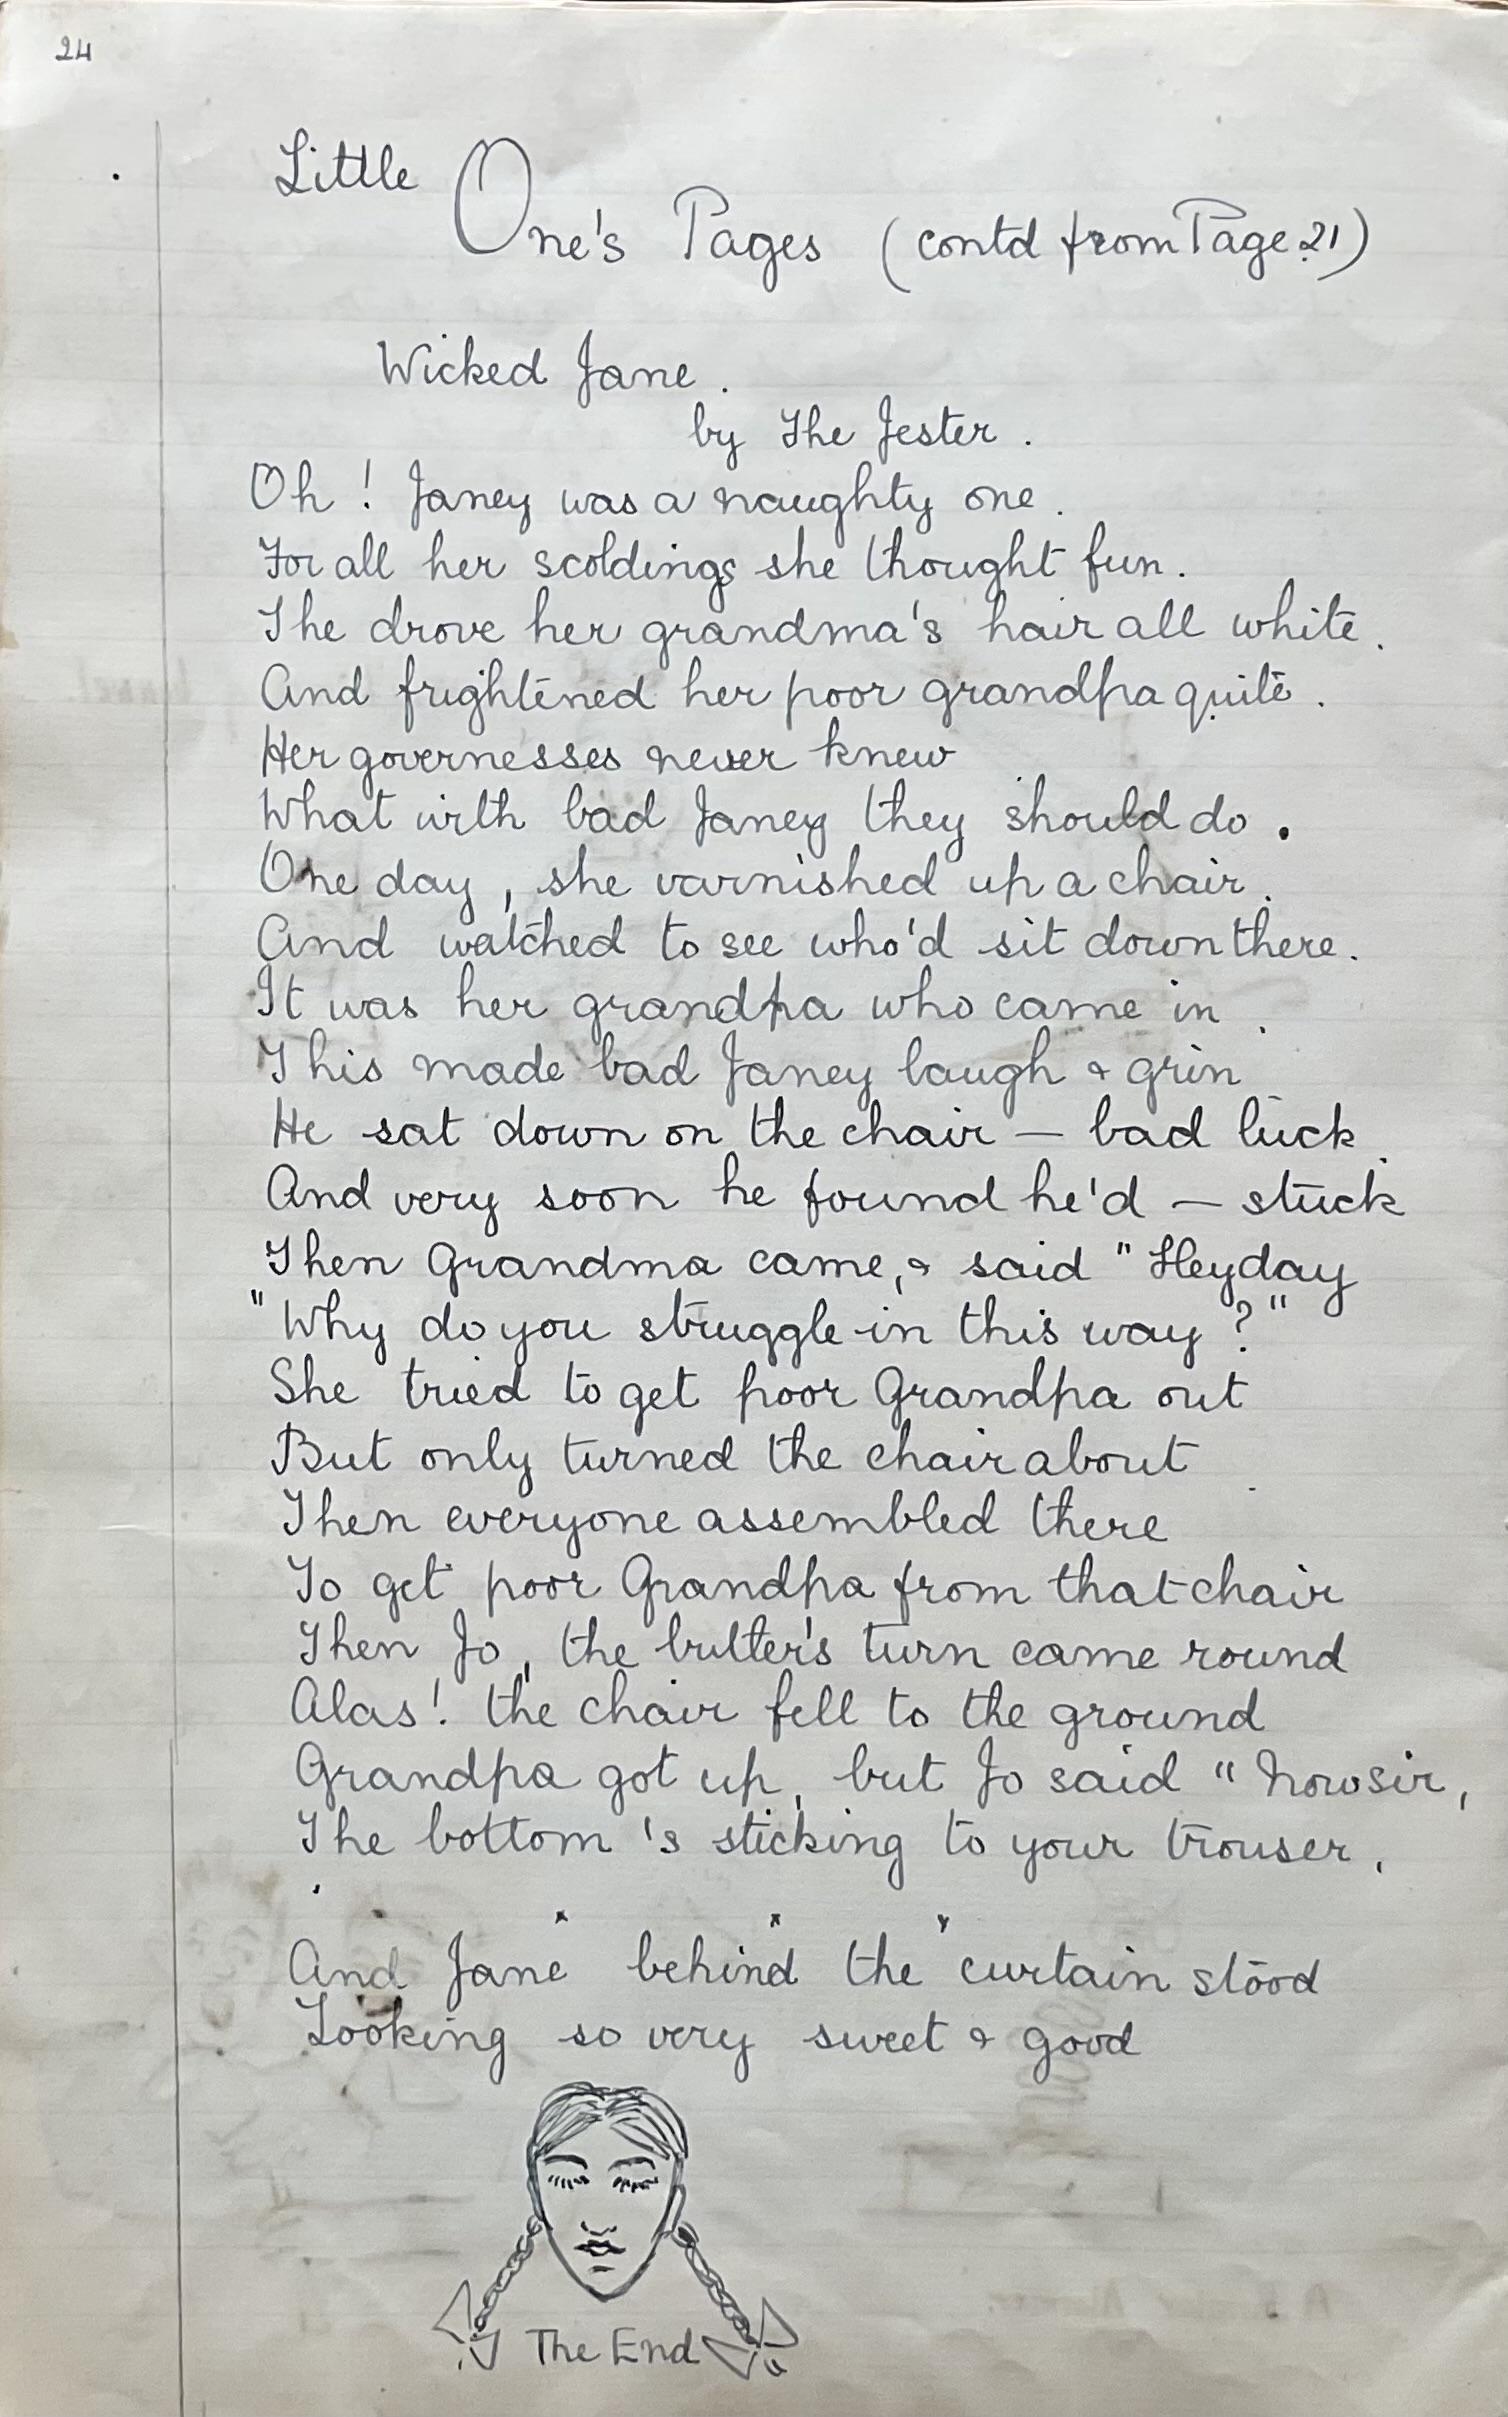 24
Little One's Pages (contd from Page.21)
Wicked Jane.
by The Jester.
Oh! Janey was a naughty one.
For all her scoldings she thought fun.
The drove her grandma's hair all white.
And frightened her poor grandpa quite.
Her governesses never knew
What with bad Janey they should do.
One day, she varnished up a chair.
And watched to see who'd sit down there.
It was her grandpa who came in.
This made bad Janey laugh & grin
He sat down on the chair – bad luck.
And very soon he found he'd – stuck
Then Grandma came, & said "Heyday
"Why do you struggle in this way?"
She tried to get poor Grandpa out
But only turned the chair about
Then everyone assembled there
To get poor Grandpa from that chair
Then Jo, the butler's turn came round
Alas! the chair fell to the ground
Grandpa got up, but Jo said "Now sir,
The bottom's sticking to your trouser,
x x x
And Jane behind the curtain stood
Looking so very sweet & good
The End